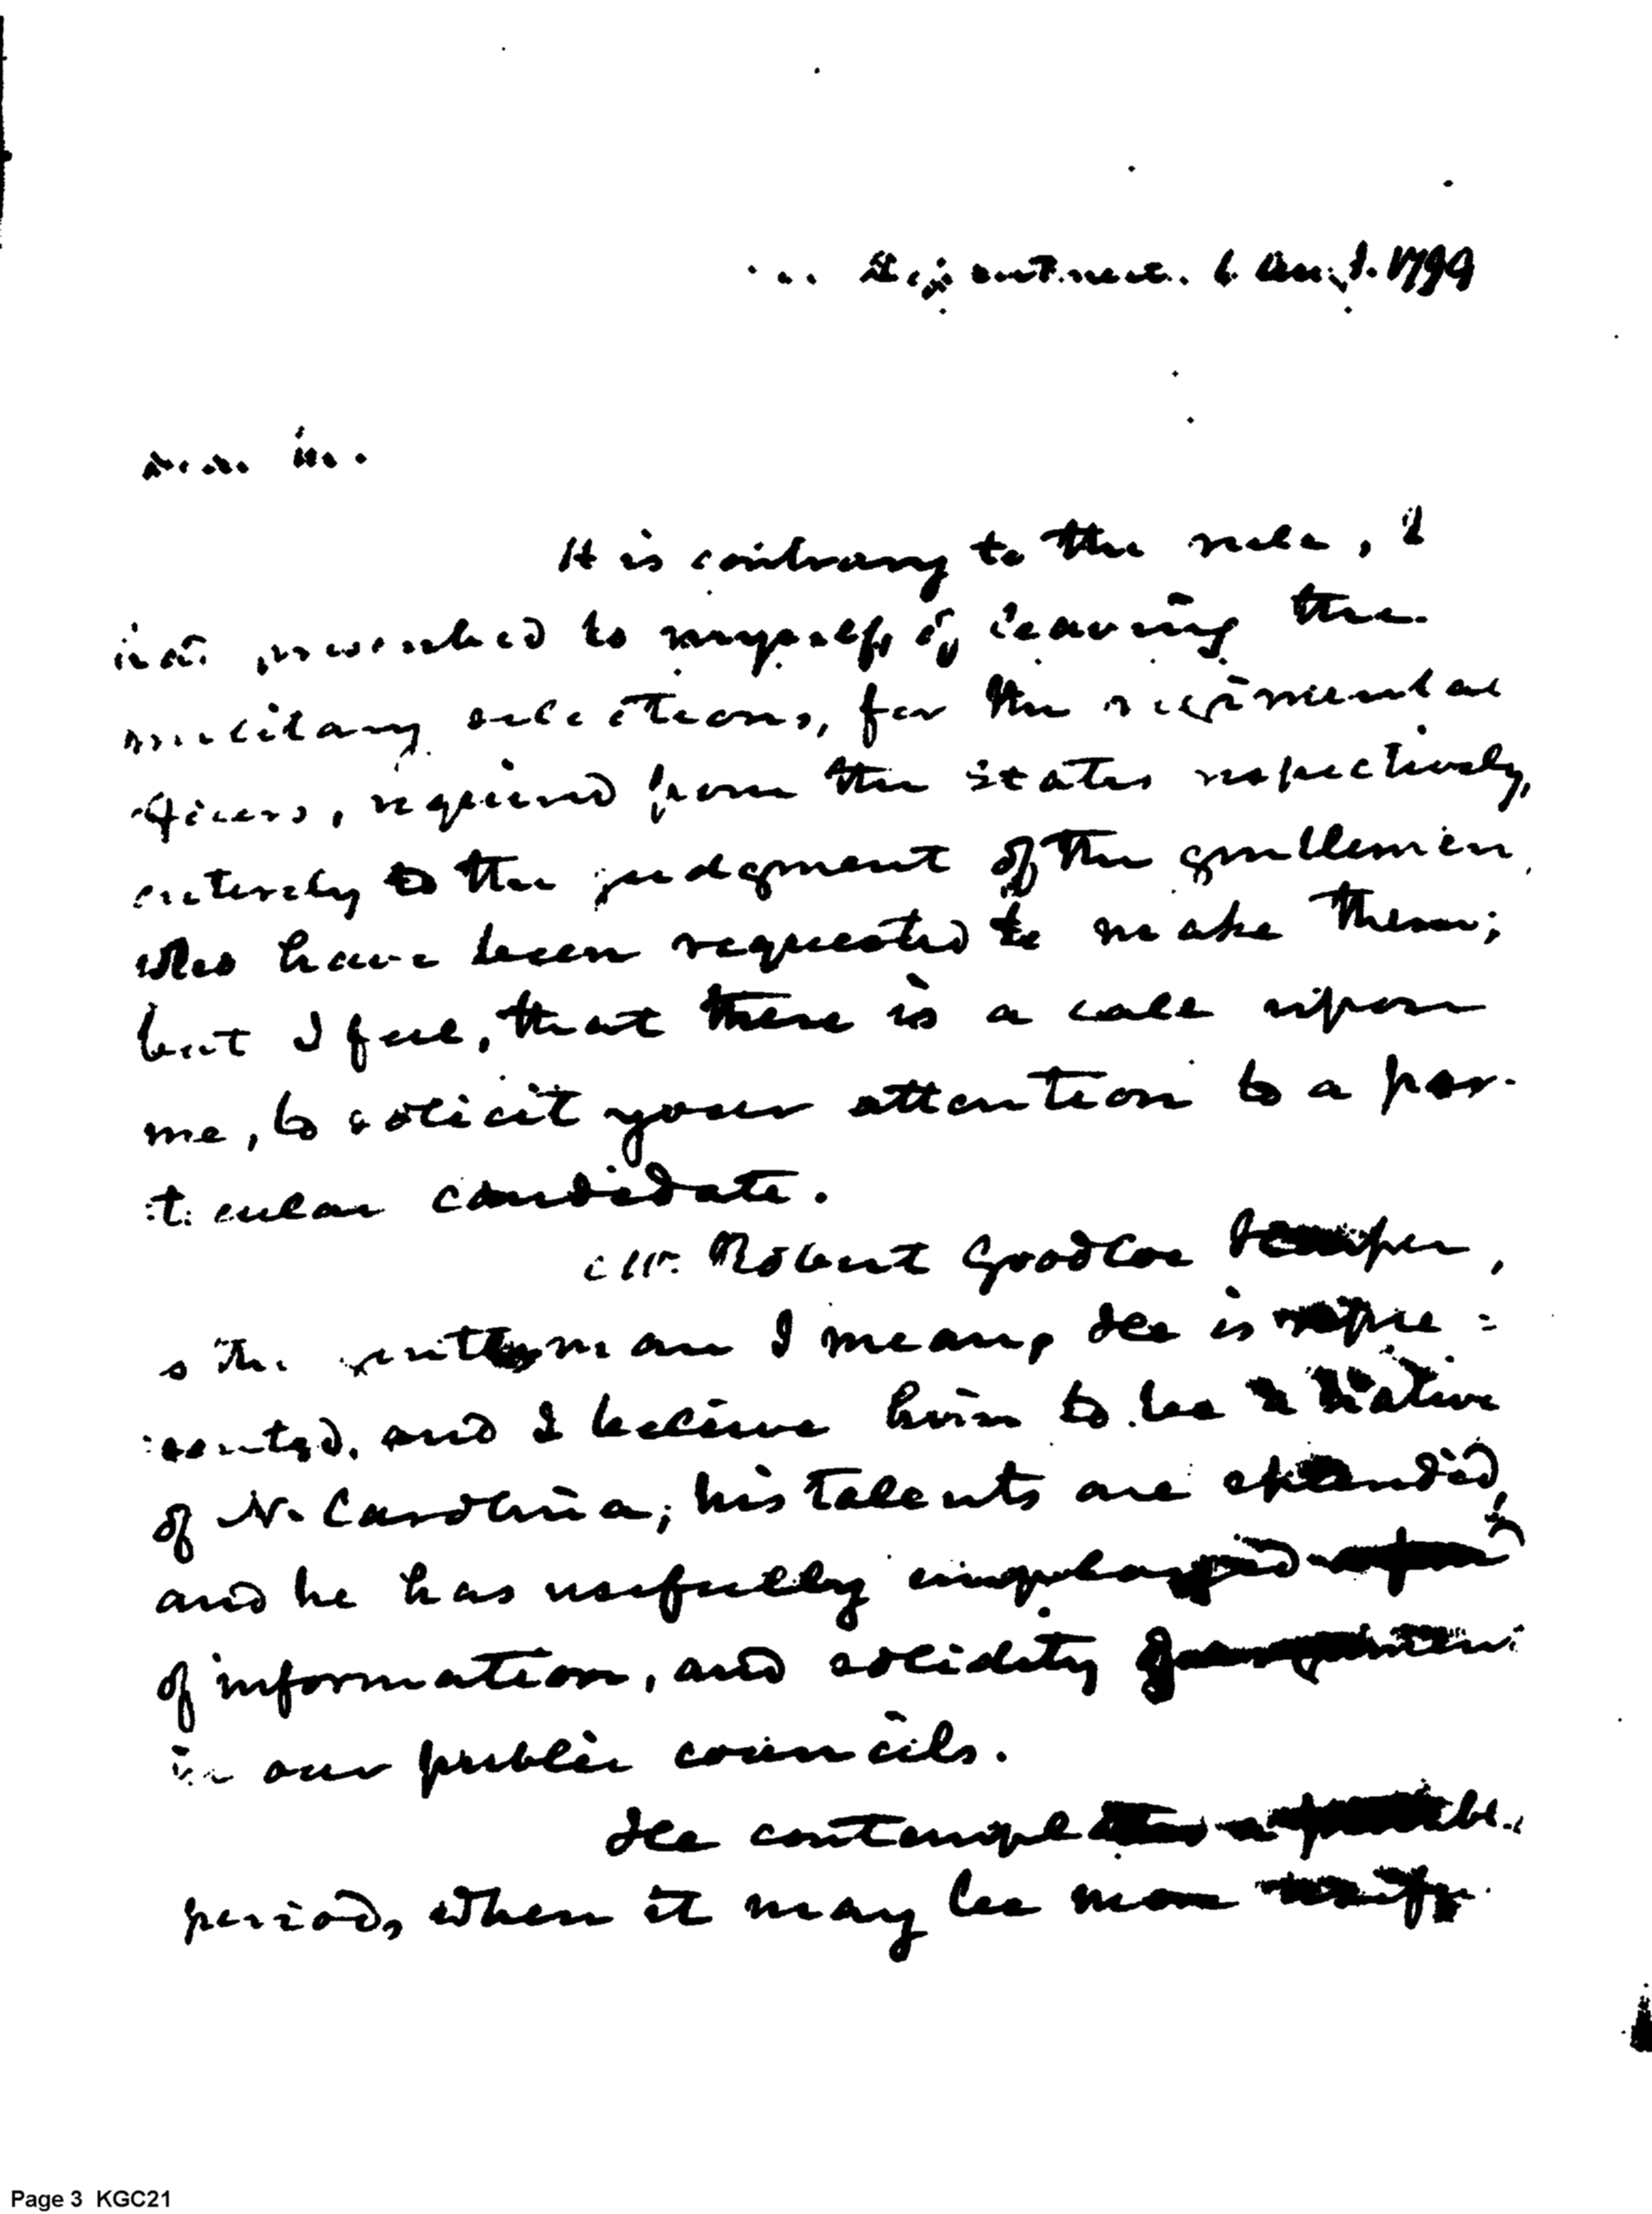 Department. 6 Aug. 1799
It is contrary to the rule, I
had prescribed to myself of leaving the
military selections, for the regimental
officers, required from the states respectively,
entirely to the judgment of the gentlemen,
who have been requested to make them;
but I feel, that there is a call upon
me, to solicit your attention to a par-
ticular candidate.
Mr. Robert Goodloe Harper,
is the gentleman I mean, He is repre=
sented, and I believe him to be a native
of N. Carolina; his talents are splendid,
and he has usefully employed
of information, and solidity
in our public councils.
He contemplates a
period, when it may be
Page 3 KGC21